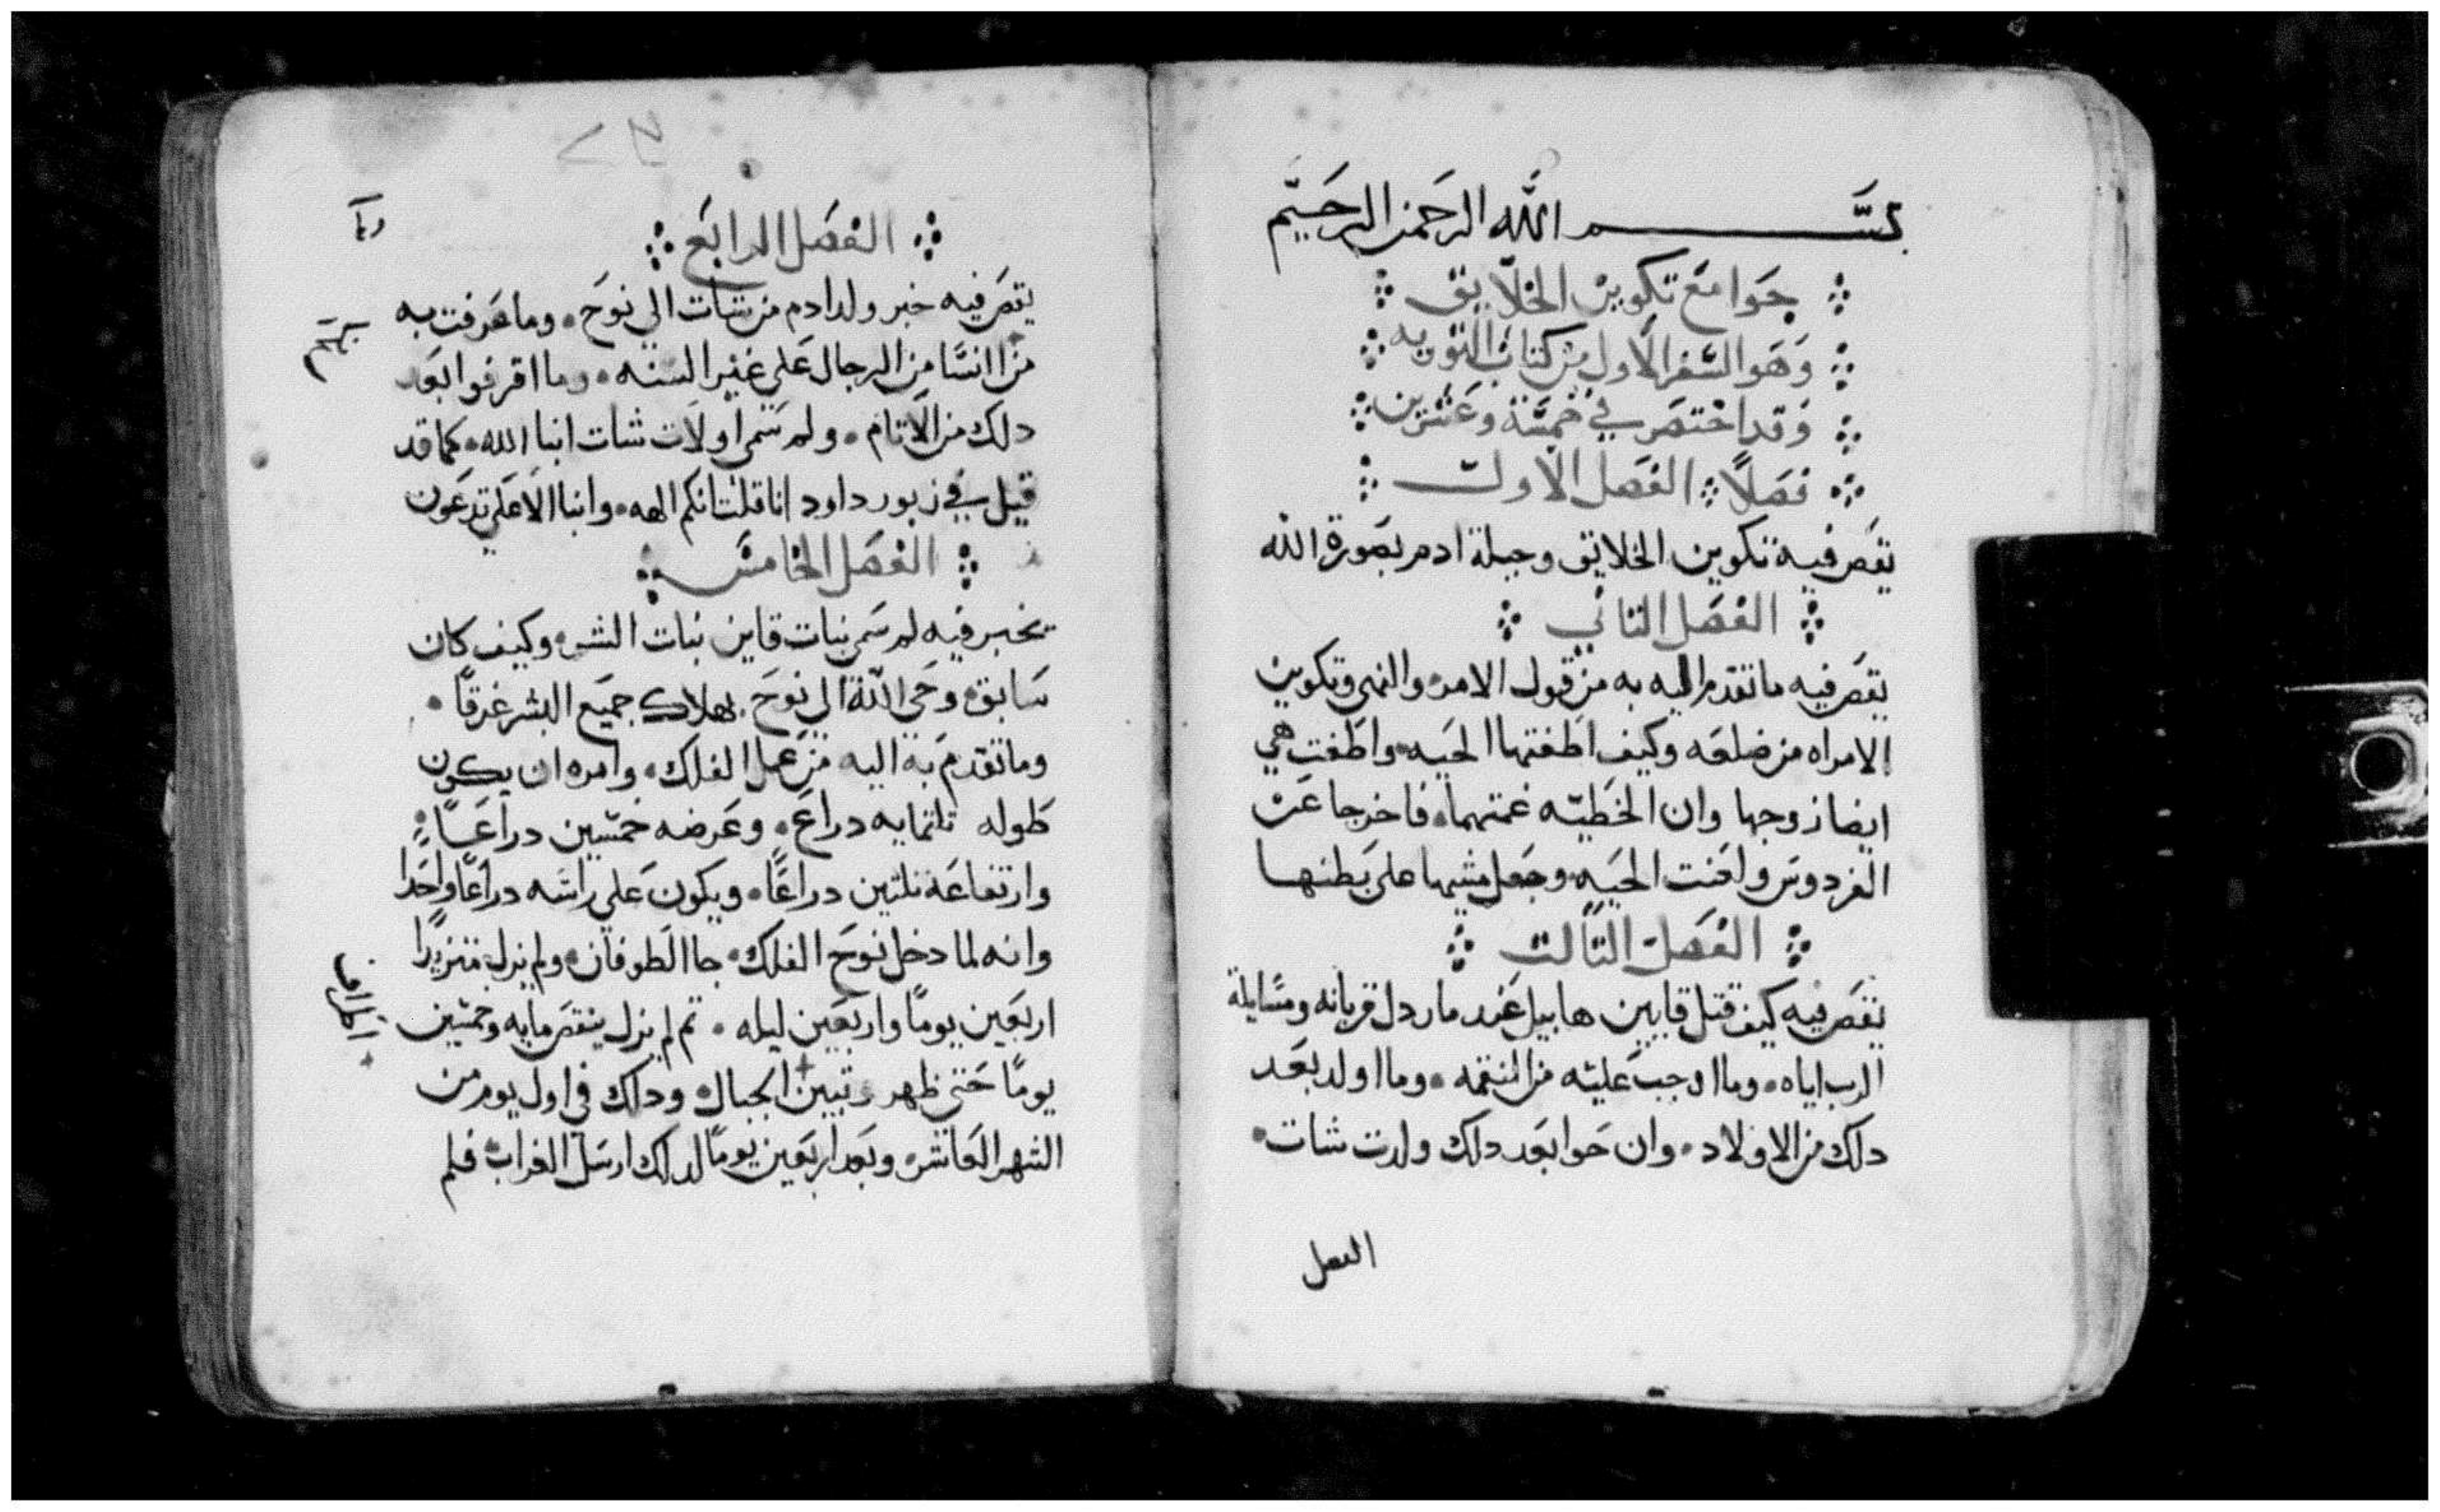 بسم الله الرحمن الرحيم
جوامع تكوين الخلايق
وهو السفر الاول من كتاب التوريه
وقد اختصر في خمسة وعشرين
فصلاً الفصل الاول
يقص فيه تكوين الخلايق وجبلة ادم بصورة الله
الفصل التاني
يقص فيه ما تقدم اليه به من قول الامر والنهى وتكوين
الامراه من ضلعه وكيف اطغتها الحيه واطغت هي
ايضا زوجها وان الخطيّه غمتهما فاخرجا عن
الفردوس ولعنت الحيه وجعل مشيها على بطنها
الفصل التالت
يقص فيه كيف قتل قايين هابيل عند ما ردل قربانه ومسايلة
الرب اياه وما اوجب عليه من النقمه وما اولد بعد
دلك من الاولاد وان حوا بعد دلك ولدت شات
الفصل
الفصل الرابع
يقص فيه خبر ولد ادم من شات الي نوح وما عرفت به
من النسا من الرجال على غير السنه وما اقرفوا بعد
دلك من الاتام ولم سمى اولات شات ابنا الله كما قد
قيل في زبور داود انا قلت انكم الهه وابنا الاعلي تدعون
الفصل الخامس
يخبر فيه لم سمى بنات قاين بنات البشر وكيف كان
سابق وحى الله الي نوح بهلاك جميع البشر غرقاً
وما تقدم به اليه من عمل الفلك وامره ان يكون
طوله تلتمايه دراع وعرضه خمسين دراعاً
وارتفاعه تلتين دراعًا ويكون علي راسه دراعًا واحدا
وانه لما دخل نوح الفلك جا الطوفان ولم يزل متزيدًا
اربعين يومًا واربعين ليله تم لم يزل ينقص مايه وخمسين
يومًا حتى ظهر وتبين الجبال ودلك في اول يوم من
الشهر العاشر وبعد اربعين يومًا لدلك ارسل الغراب فلم